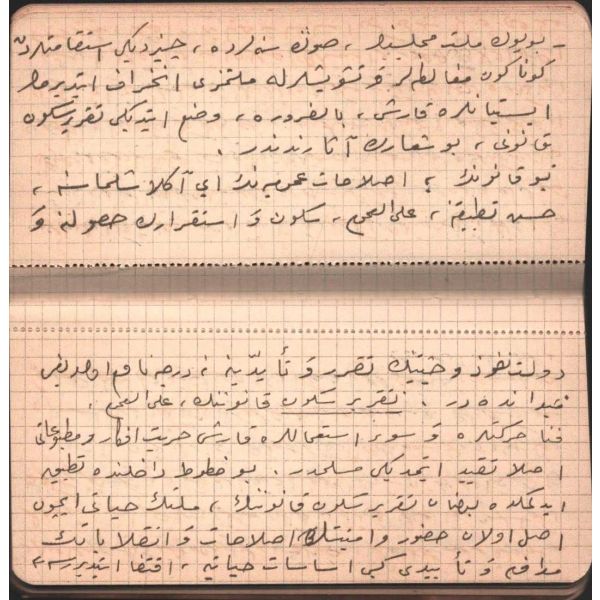 ـ بويوك ملت مجلسنك ، صوڭ سنه لرده ، چيزديكى استقامتلردن
كوناكون مغالطه لر و تشويشلرله ملتمزى انحراف ايتديرمك
ايستيانلره قارشى ، بالضروره ، وضع ايتديكى تقرير سكون
قانونى ، بو شعارك آثارندندر .
بو قانونك ؛ اصلاحات عموميه نك اى آكلاشلماسنه ،
حسن تطبيقنه ، على العموم ، سكون و استقرارك حصولنه و
دولت نفوذ و حيثيتنك تقرر و تأيدينه نه درجه نافع اولديغى
ميدانده در . تقرير سكون قانوننك ، على العموم ،
فنا حركتلره و سوء استعماللره قارشى حريت افكار و مطبوعاتى
اصلا تقييد ايتمديكى مسلمدر . بو خطوط داخلنده تطبيق
ايدلمكده بولنان تقرير سكون قانوننك ، ملتك حياتى ايچون
اصل اولان حضور و امنيتك اصلاحات و انقلاباتك
مدافعه و تأييدى كبى اساسات حياتيه ، اقتضا ايتديررسه